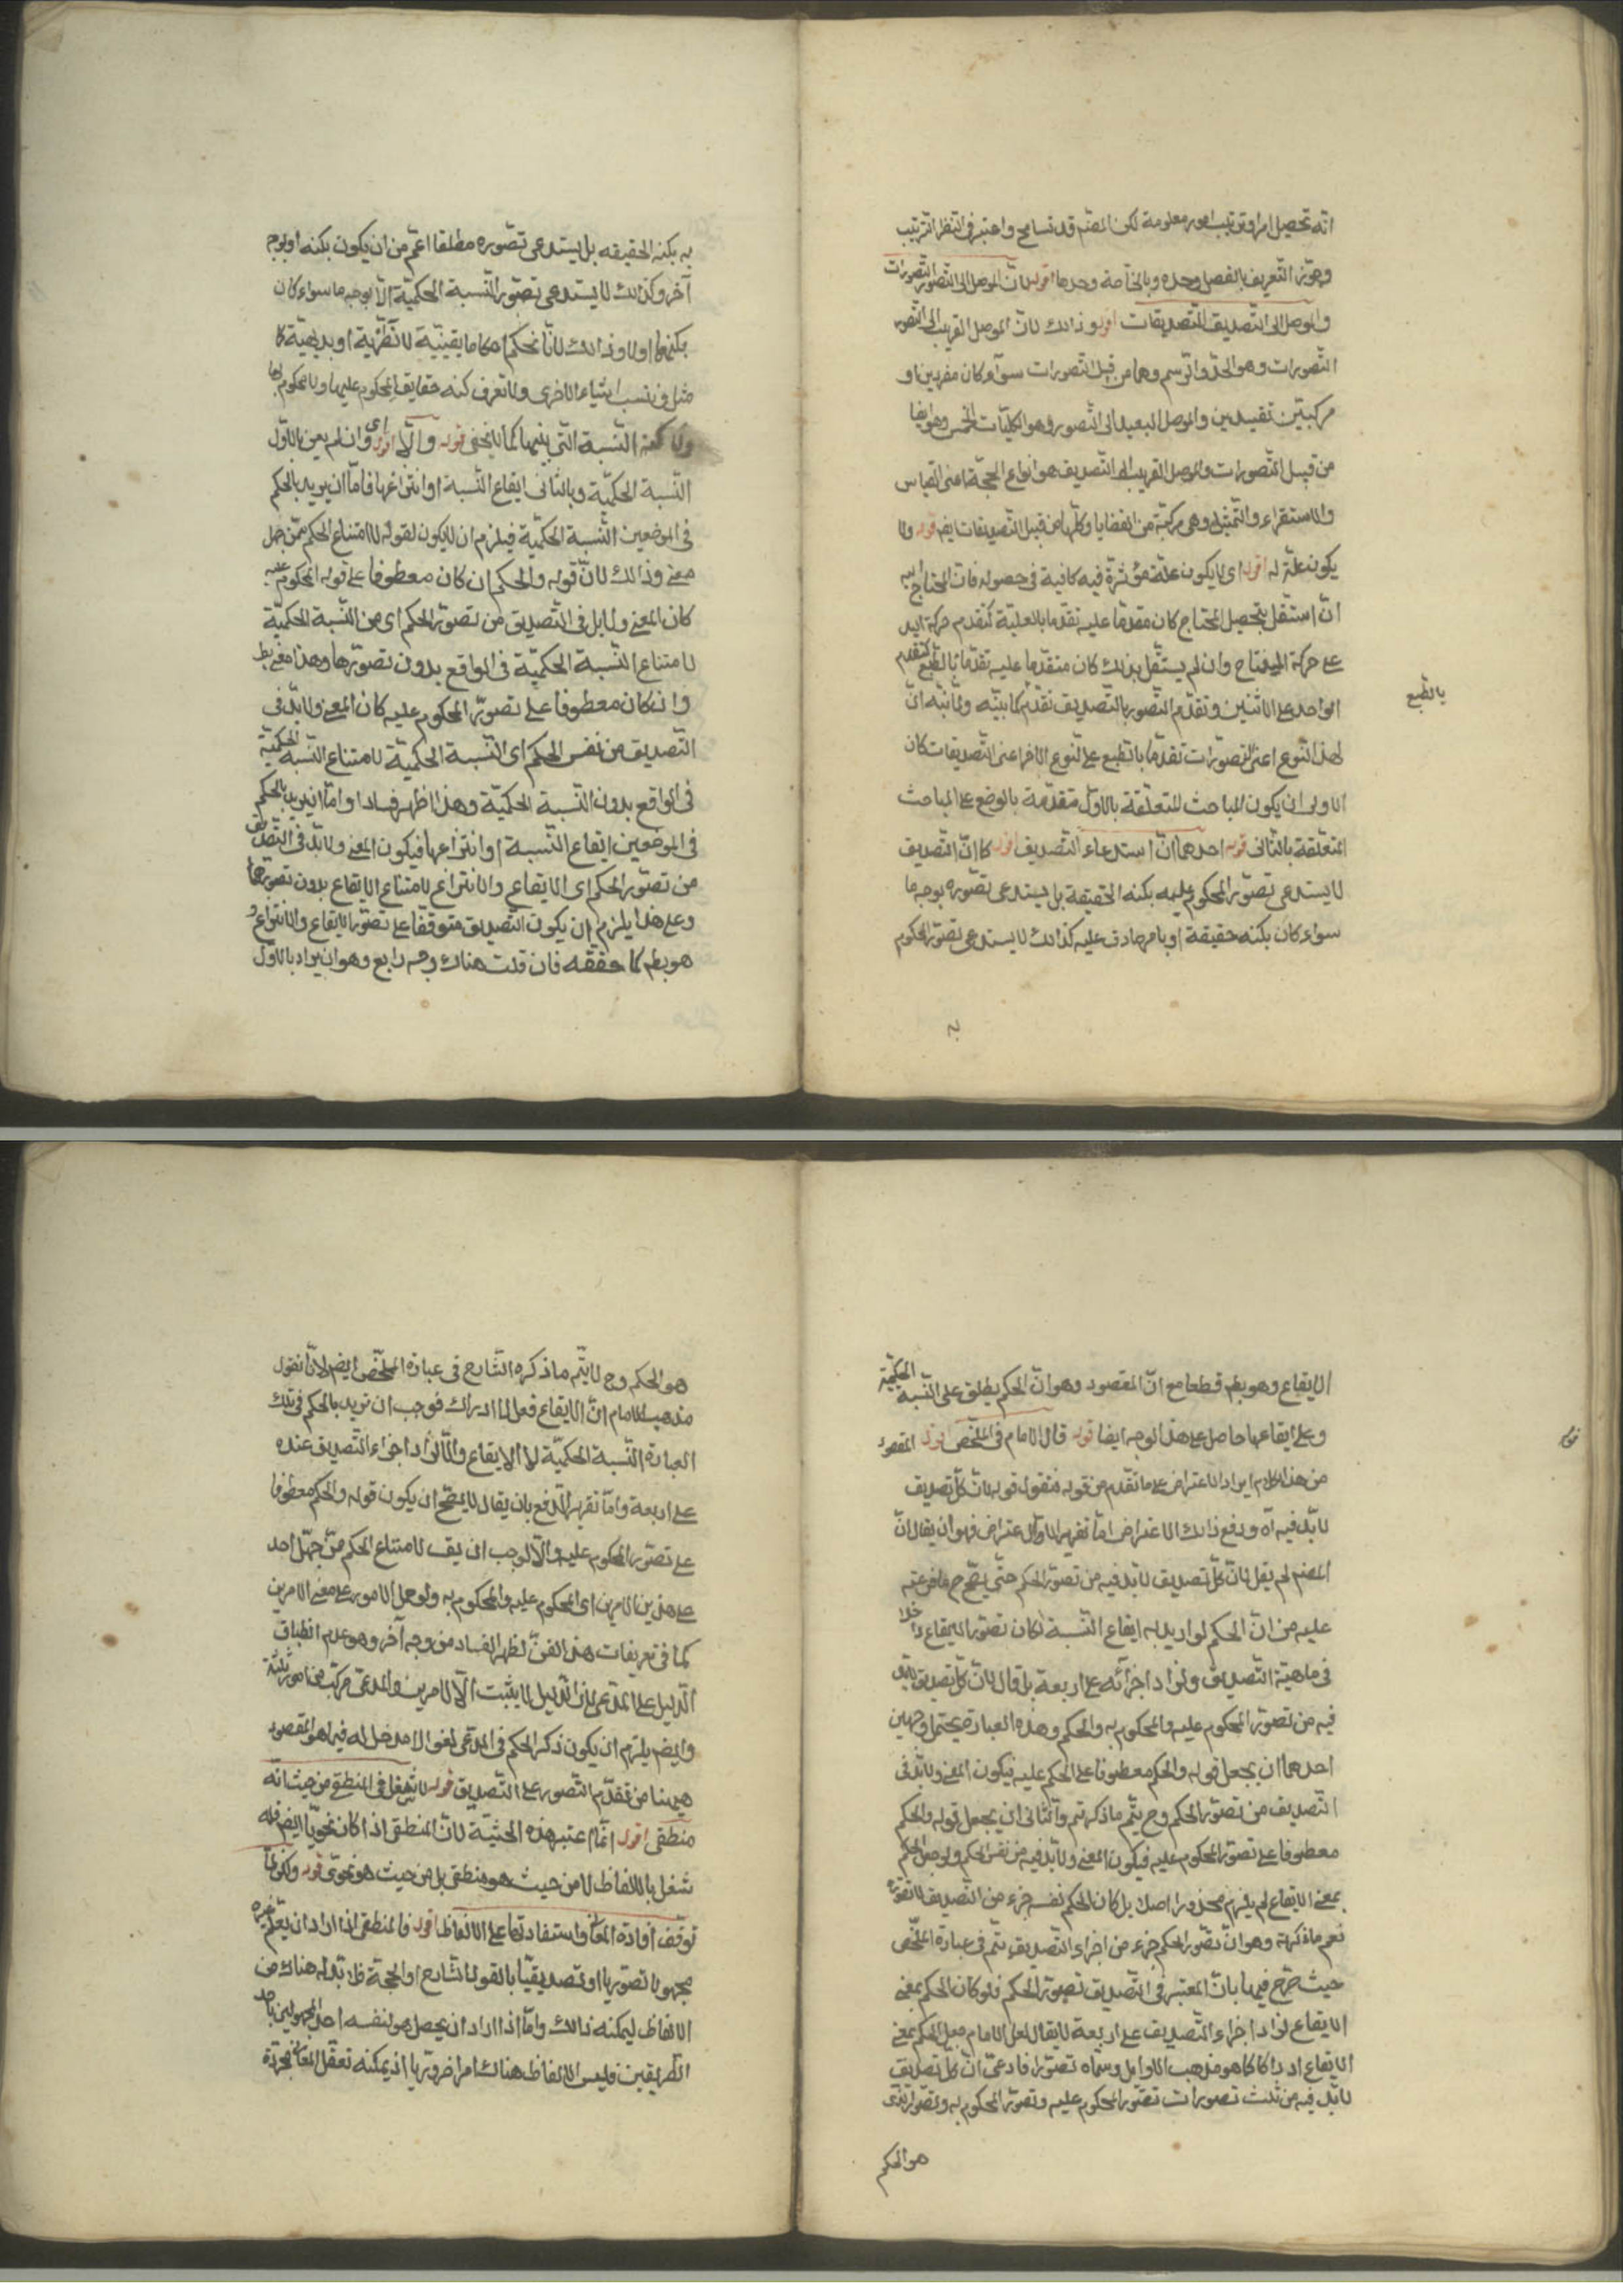 انه تحصيل امر او ترتيب امور معلومة لكن المصنم قد تسامح واعتبر فى النظر الترتيب
وجوّز التعريف بالفصل وحده وبالخاصة وحدها اقول لان الموصل الى التصور التصورات
والموصل الى التصديق التصديقات اقول وذلك لان الموصل القريب الى التصور
التصورات وهو الحد والرسم وهما من قبيل التصورات سواء كان مفردين او
مركبين تقييديين والموصل البعيد الى التصور وهو الكليات الخمس وهو ايضا
من قبيل التصورات والموصل القريب الى التصديق هو انواع الحجة اعنى القياس
والاستقراء والتمثيل وهى مركبة من القضايا وكلها من قبيل التصديقات ايضا قوله ولا
يكون علة له اقول اى لا يكون علة مؤثرة فيه كافية فى حصوله فان المحتاج اليه
ان استقل بتحصيل المحتاج كان مقدما عليه تقدما بالعلية كتقدم حركة اليد
على حركة المفتاح وان لم يستقل بذلك كان متقدما عليه تقدما بالطبع كتقدم
الواحد على الاثنين وتقدم التصور بالتصديق تقدم كما بينه ولما نبه ان
بالطبع
لهذا النوع اعنى التصورات تقدما بالطبع على النوع الاخر اعنى التصديقات كان
الاولى ان يكون المباحث المتعلقة بالاول متقدمة بالوضع على المباحث
المتعلقة بالثانى قوله احدهما ان استدعاء التصديق اقول كما ان التصديق
لا يستدعى تصور المحكوم عليه بكنه الحقيقة بل يستدعى تصوره بوجه ما
سواء كان بكنه حقيقة او بامر صادق عليه كذلك لا يستدعى تصور المحكوم
به
به بكنه الحقيقه بل يستدعى تصوره مطلقا اعم من ان يكون بكنه او بوجه
آخر وكذلك لا يستدعى تصور النسبة الحكمية الا بوجه ما سواء كان
بكنهها اولا وذلك لانا نحكم احكاما يقينية نظرية او بديهية كا
مثل فى نسب اشياء لاخرى ولا نعرف كنه حقايق المحكوم عليها ولا المحكوم بها
ولا كنه النسبة التى بينهما كما لا يخفى قوله والا اقول اى وان لم يعن بالاول
النسبة الحكمية وبالثانى ايقاع النسبة او انتزاعها فاما ان يريد بالحكم
فى الموضعين النسبة الحكمية فيلزم ان لا يكون لقوله لامتناع الحكم ممن جهل
معنى وذلك لان قوله والحكم ان كان معطوفا على قوله المحكوم عليه
كان المعنى ولا بد فى التصديق من تصور الحكم اى من النسبة الحكمية
لامتناع النسبة الحكمية فى الواقع بدون تصورها وهذا معنى بط
وان كان معطوفا على تصور المحكوم عليه كان المعنى ولا بد فى
التصديق من نفس الحكم اى النسبة الحكمية لامتناع النسبة الحكمية
فى الواقع بدون النسبة الحكمية وهذا اظهر فسادا واما ان يريد بالحكم
فى الموضعين ايقاع النسبة او انتزاعها فيكون المعنى ولا بد فى التصديق
من تصور الحكم اى الايقاع والانتزاع لامتناع الايقاع بدون تصورها
وعلى هذا يلزم ان يكون التصديق متوقفا على تصور الايقاع والانتزاع و
هو بط كما حققه فان قلت هناك وجه رابع وهو ان يراد بالاول
الايقاع وهو بط قطعا مع ان المقصود وهو ان الحكم يطلق على النسبة الحكمية
وعلى ايقاعها حاصل على هذا الوجه ايضا قوله قال الامام فى الملخص اقول المقصود
من هذا الكلام ايراد الاعتراض على ما تقدم من قوله فنقول قوله لان كل تصديق
لا بد فيه آه ودفع ذلك الاعتراض اما تقرير الاول الاعتراض فهو ان يقال ان
المصنم لم يقل لان كل تصديق لا بد فيه من تصور الحكم حتى يصح ح ما فرعته
عليه من ان الحكم لو اريد به ايقاع النسبة لكان تصور الايقاع داخلا
فى ماهية التصديق ولزاد اجزائه على اربعة بل قال لان كل تصديق لا بد
فيه من تصور المحكوم عليه والمحكوم به والحكم وهذه العبارة يحتمل وجهين
احدهما ان يجعل قوله والحكم معطوفا على المحكوم عليه فيكون المعنى ولا بد فى
التصديق من تصور الحكم وح يتم ما ذكرتم والثانى ان يجعل قوله والحكم
معطوفا على تصور المحكوم عليه فيكون المعنى ولا بد فيه من نفس الحكم ولو جعل الحكم
بمعنى الايقاع لم يلزم محذورا اصلا بل كان الحكم نفسه جزء من التصديق لا تصوره
نعم ما ذكرته وهو ان تصور الحكم جزء من اجزاء التصديق يتم فى عبارة الملخص
حيث صرح فيها بان المعتبر فى التصديق تصور الحكم فلو كان الحكم بمعنى
الايقاع لزاد اجزاء التصديق على اربعة لا يقال لعل الامام جعل الحكم بمعنى
الايقاع ادراكا كما هو مذهب الاوايل وسماه تصورا فادعى ان كل تصديق
لا بد فيه من ثلث تصورات تصور المحكوم عليه وتصور المحكوم به وتصور الذى
هو الحكم
هو الحكم وح لا يتم ما ذكره الشارح فى عبارة الملخص ايضا لانا نقول
مذهب الامام ان الايقاع فعل لا ادراك فوجب ان نريد بالحكم فى تلك
العبارة النسبة الحكمية لا الايقاع والا لزاد اجزاء التصديق عنده
على اربعة واما تقرير الدفع بان يقال لا يصح ان يكون قوله والحكم معطوفا
على تصور المحكوم عليه والا لوجب ان يقـ لامتناع الحكم ممن جهل احد
هذين الامرين اى المحكوم عليه والمحكوم به ولو حمل الامور على معنى الامرين
كما فى تعريفات هذا الفن لظهر الفساد من وجه آخر وهو عدم انطباق
الدليل على المدعى لان الدليل لا يثبت الا الامرين والمدعى مركب من امور ثلثة
وايضا يلزم ان يكون ذكر الحكم فى المدعى لغوا لا مدخل له فيما هو المقصود
هيهنا من تقدم التصور على التصديق قوله لا شغل فى المنطق من حيث انه
منطقى اقول انما اعتبر هذه الحيثية لان المنطقى اذا كان نحويا ايضا فله
شغل بالالفاظ لا من حيث هو منطقى بل من حيث هو نحوى قوله ولكن لما
توقف افادة المعانى واستفادتها على الالفاظ اقول فالمنطقى اذا اراد ان يعلم غيره
مجهولا تصوريا او تصديقيا بالقول الشارح او الحجة فلا بد له هناك من
الالفاظ ليمكنه ذلك واما اذا اراد ان يحصل هو لنفسه احد المجهولين باحد
الطريقين فليس الالفاظ هناك امرا ضروريا اذ يمكنه تعقل المعانى مجردة